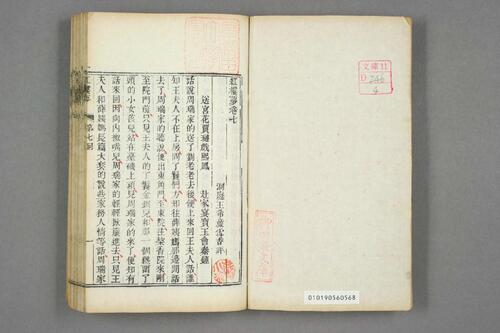 紅樓夢卷七
洞庭王希廉雪香評
送宮花賈璉戲熙鳳　赴家宴寶玉會秦鐘
話說周瑞家的送了劉老老去後便上來回王夫人話誰
知王夫人不在上房問丫鬟們方知往薛姨媽那邊閒話
去了周瑞家的聽說便出東角門至東院往梨香院來剛
至院門前只見王夫人的丫鬟金釧兒和那一個纔留了
頭的小女孩兒站在臺磯上頑見周瑞家的來了便知有
話來回因向內撇嘴兒周瑞家的輕輕掀簾進去只見王
夫人和薛姨媽長篇大套的說些家務人情等話周瑞家
紅樓夢
第七回
文庫11
D 246
4
010190560568